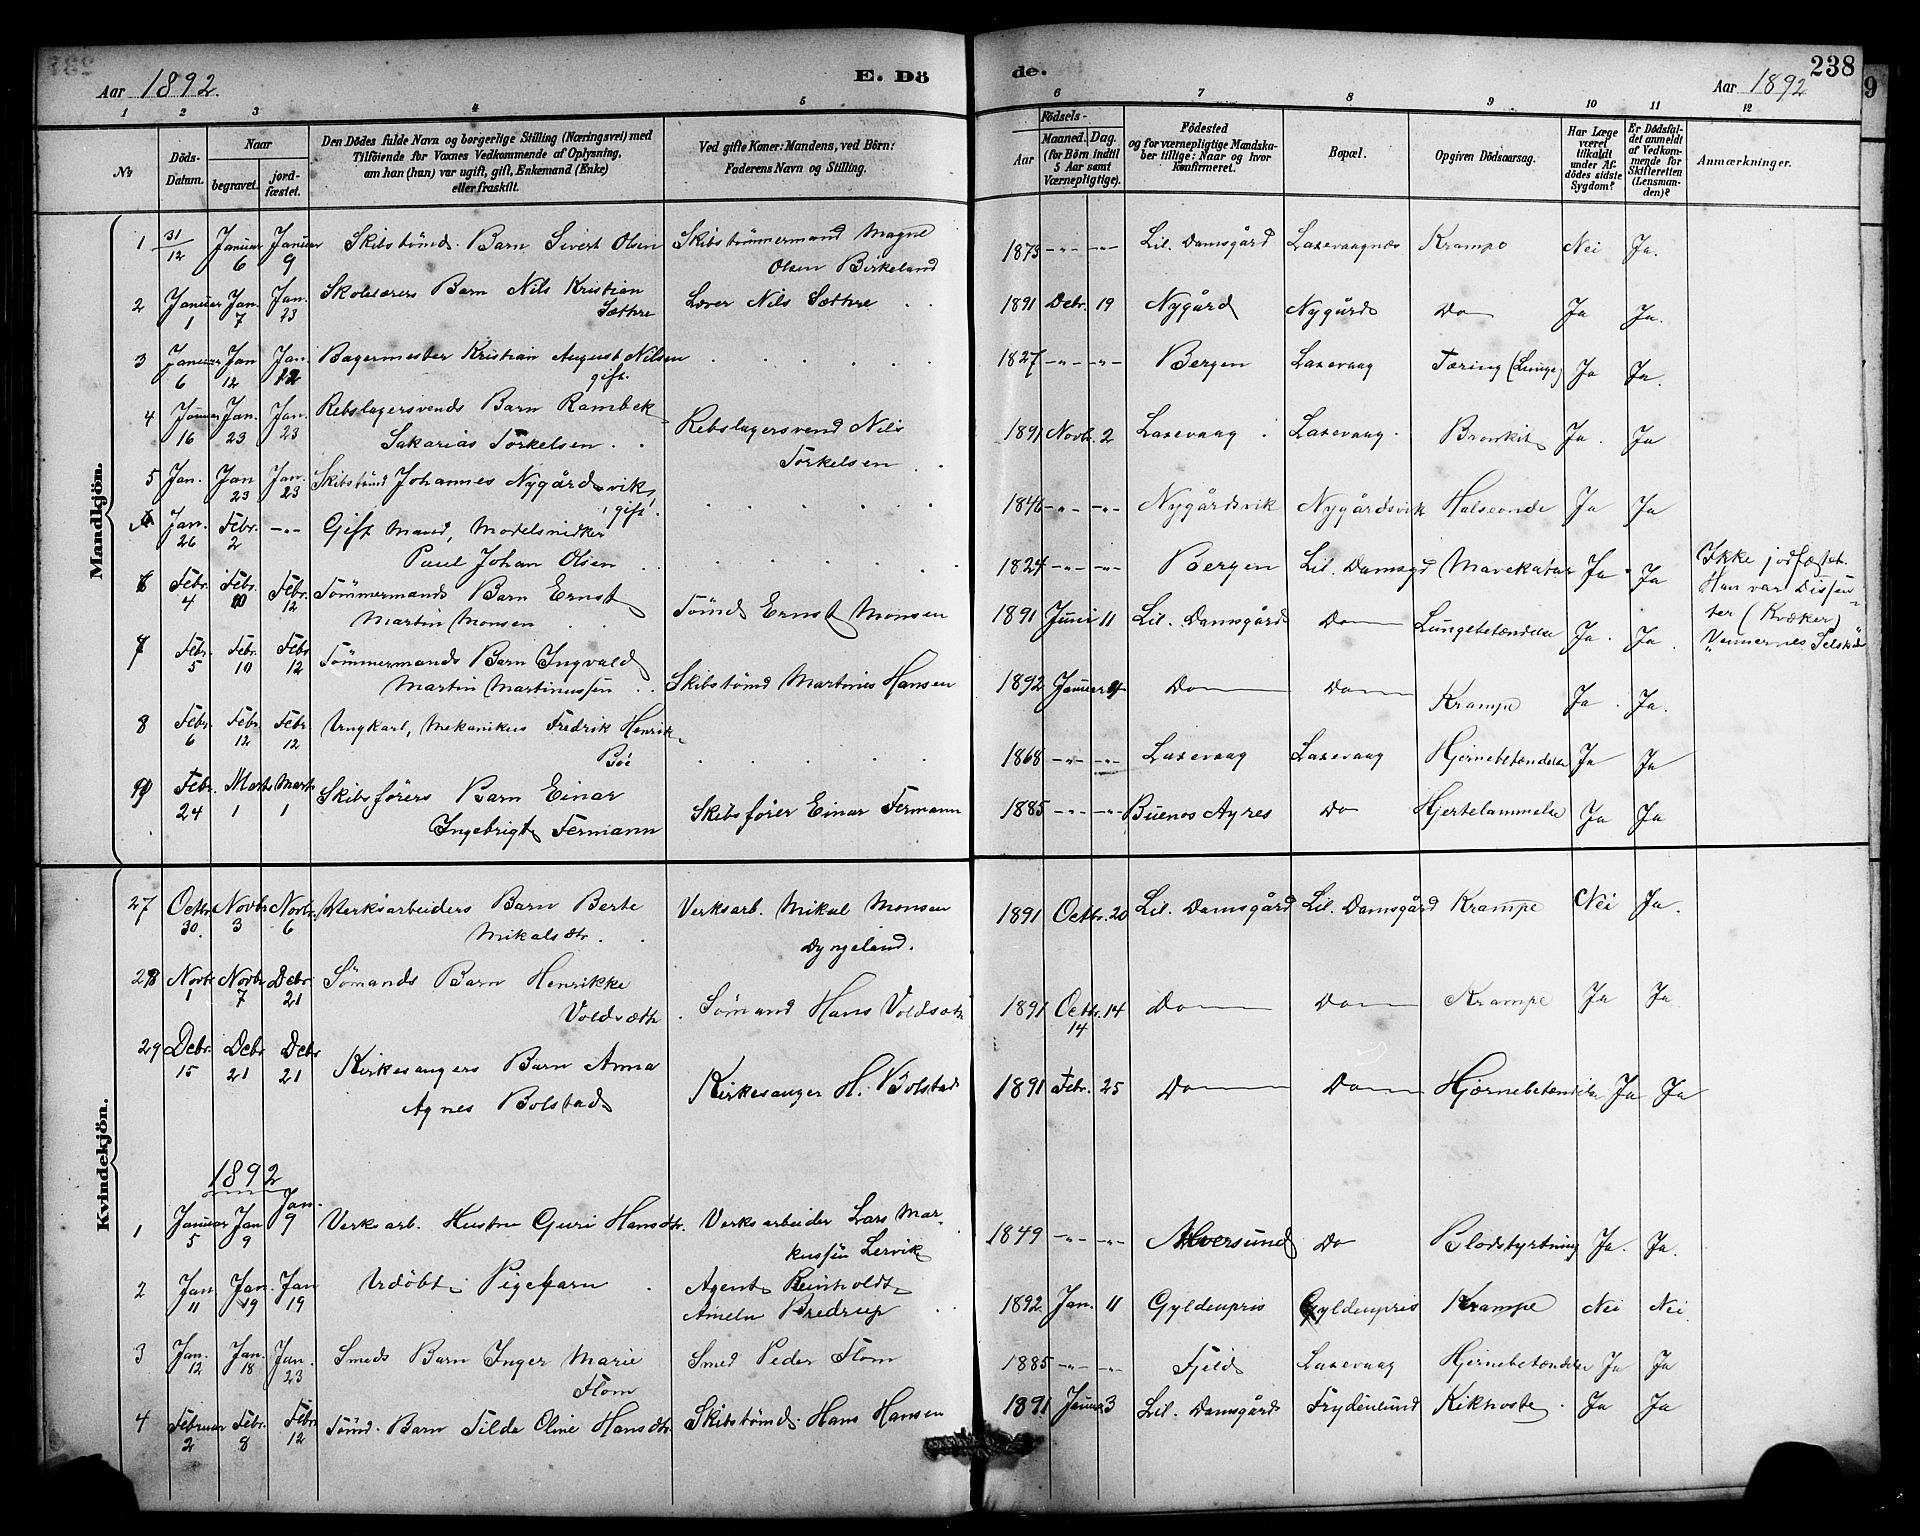 238
Aar 1892.
E. Dö
de.
Aar 1892
1 2 3 4 5 6 7 8 9 10 11 12
No
Döds-Datum.
Naar
begravet.
jord-fæstet.
Den Dödes fulde Navn og borgerlige Stilling (Næringsvei) med
Tilföiende for Voxnes Vedkommende af Oplysning,
om han (hun) var ugift, gift, Enkemand (Enke)
eller fraskilt.
Ved gifte Koner: Mandens, ved Börn:
Faderens Navn og Stilling.
Födsels-
Aar
Maaned. Dag.
(for Börn indtil
5 Aar samt
Værnepligtige).
Födested
og for værnepligtige Mandska-
ber tillige: Naar og hvor
konfirmeret.
Bopæl.
Opgiven Dödsaarsag.
Har Læge
været
tilkaldt
under Af-
dödes sidste
Sygdom?
Er Dödsfal-
det anmeldt
af Vedkom-
mende for
Skifteretten
(Lensman-
den)?
Anmærkninger.
Mandkjön.
1 31/12 Januar 6 Januar 9 Skibstömd. Barn Sivert Olsen Skibstömmermand Magne Olsen Birkeland 1873 -"- -"- Lil. Damsgård Laxevaagnes Krampe Nei Ja.
2 Januar 1 Jan. 7 Jan. 23 Skolelærers Barn Nils Kristian Sæthre Lærer Nils Sæthre 1891 Debr. 19 Nygård Nygård Do Ja Ja.
3 Januar 6 Jan 12 Jan. 12 Bagermester Kristian August Nilsen gift. 1827 -"- -"- Bergen Laxevaag Tæring (Lunge) Ja Ja.
4 Januar 16 Jan. 23 Jan. 23 Rebslagersvends Barn Rambek Sakarias Torkelsen Rebslagersvend Nils Torkelsen 1891 Novbr. 2 Laxevaag Laxevaag. Bronkit Ja. Ja
5 Jan. Jan 23 Jan. 23 Skibstömd Johannes Nygårdsvik, gift. 1846 -"- -"- Nygårdsvik Nygårdsvik Halseonde Ja Ja
Jan. 26 Febr. 2 -"- Gift Mand, Modelsnidker Paul Johan Olsen 1824 -"- -"- Bergen Lil. Damsgd Mavekatar Ja. Ja Ikke jordfæstet. Han var Dissenter (Kvæker) "Vennernes
6 Febr. 4 Febr. 10 Febr. 12 Tömmermands Barn Ernst Martin Monsen Tömd Ernst Monsen 1891 Juni 11 Lil. Damsgård Do Lungebetændelse Ja. Ja.
7 Febr. 5 Febr. 10 Febr 12 Tömmermands Barn Ingvald Martin Martinussen Skibstömd Martinus Hansen 1892 Januar Do Do Krampe Ja. Ja.
8 Febr. 6 Febr. 12 Febr 12 Ungkarl, Mekanikus Fredrik Henrik Böe 1868 -"- -"- Laxevaag Laxevaag Hjernebetændelse Ja Ja
9 Febr. 24 Marts 1 Marts 1 Skibsförers Barn Einar Ingebrigt Fermann Skibsförer Einar Fermann 1885 -"- -"- Buenos Ayres Do Hjertelammelse Ja Ja
Kvindekjön.
27 Octbr. 30. Novbr 3 Novbr. 6 Verksarbeiders Barn Berte Mikalsdtr. Verksarb. Mikal Monsen Dyngeland. 1891 Octbr. 20 Lil. Damsgård Lil. Damsgård Krampe Nei Ja.
28 Novbr 1 Novbr 7 Debr. 21 Sömands Barn Henrikke Voldsæth Sömand Hans Voldsæth 1891 Octbr. 14 14 Do Do Krampe Ja Ja
29 Debr. 15 Debr 21 Debr 21 Kirkesangers Barn Anna Agnes Bolstad Kirkesanger H. Bolstad 1891 Febr. 25 Do Do Hjernebetændelse Ja Ja
1892
1 Januar 5 Jan 9 Jan. 9 Verksarb. Hustru Guri Hansdtr. Verksarbeider Lars Markussen Lervik 1849 -"- -"- Alversund Do Blodstyrtning Ja. Ja.
2 Jan 11 Jan. 19 Jan 19 Udöbt Pigebarn Agent Reinholdt Ameln Bredrup 1892 Jan. 11 Gyldenpris Gyldenpris Krampe Nei Nei
3 Jan. 12 Jan. 18 Jan. 23 Smeds Barn Inger Marie Flom Smed Peder Flom 1885 -"- -"- Fjeld Laxevaag Hjernebetændelse Ja Ja
4 Februar 2 Febr. 8 Febr. 12 Tömd. Barn Tilda Oline Hansdtr. Skibstömd. Hans Hansen 1891 Januar 3 Lil. Damsgård Frydenlund Kikhoste. Ja Ja